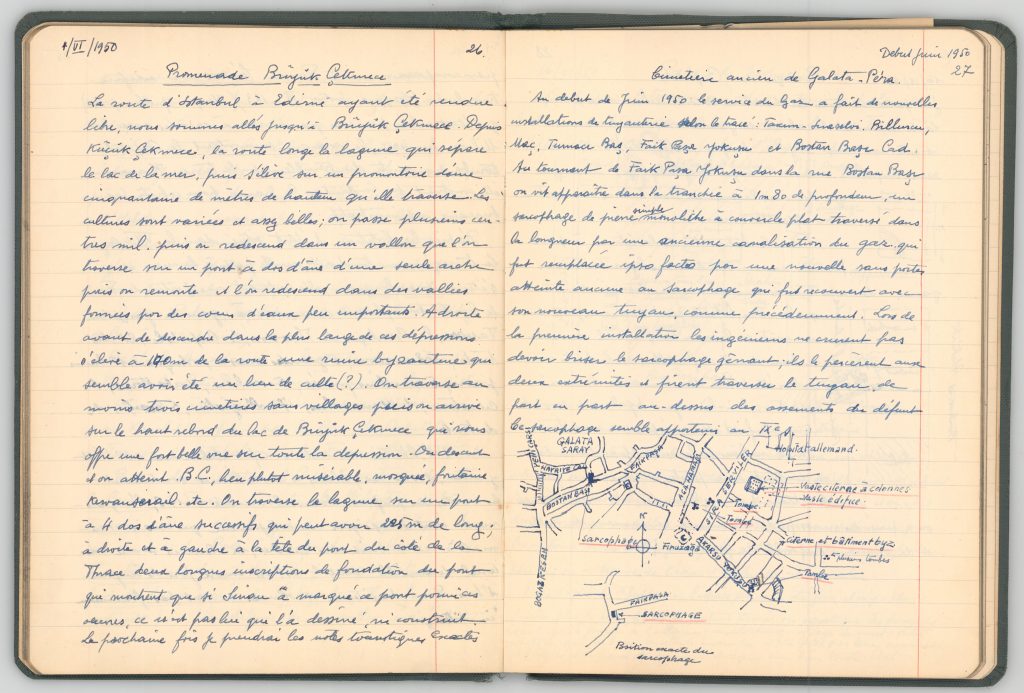 4/VI/1950
26.
Promenade Büyük Çekmece
La route d'Istanbul à Edirné ayant été rendue
libre, nous sommes allés jusqu'à Büyük Çekmece. Depuis
Küçük Çekmece, la route longe la lagune qui sépare
le lac de la mer, puis s'élève sur un promontoire d'une
cinquantaine de mètres de hauteur qu'elle traverse. Les
cultures sont variées et assez belles; on passe plusieurs cen-
tres mil. puis on redescend dans un vallon que l'on
traverse sur un pont à dos d'âne d'une seule arche
puis on remonte et l'on redescend dans des vallées
formées par des cours d'eaux peu importants. A droite
avant de descendre dans la plus large de ces dépressions
s'élève à 100m de la route une ruine byzantine qui
semble avoir été un lieu de culte (?). On traverse au
moins trois cimetières sans villages puis on arrive
sur le haut rebord du lac de Büyük Çekmece qui nous
offre une fort belle vue sur toute la dépression. On descend
et on atteint B.C, lieu plutôt misérable, mosquée, fontaine
Kervanserail etc. On traverse la lagune sur un pont
à 4 dos d'âne successifs qui peut avoir m de long;
à droite et à gauche à la tête du pont du côté de la
Thrace deux longues inscriptions de fondation du pont
qui montrent que si Sinan a marqué ce pont parmi ses
oeuvres, ce n'est pas lui qui l'a dessiné, ni construit.
La prochaine fois je prendrai les notes touristiques exactes
Debut Juin 1950
27
Cimetière ancien de Galata-Péra.
Au debut de Juin 1950 le service du Gaz a fait de nouvelles
installations de tuyauterie selon le tracé: Taxim-Sıraselvi, Billurcu,
Mac, Turnacı Baş, Faik Paşa Yokuşu et Bostan Başı Cad.
Au tournant de Faik Paşa Yokuşu dans la rue Bostan Başı
on vit apparaître dans la tranchée à 1m80 de profondeur, un
sarcophage de pierre simple monolithe à couvercle plat traversé dans
la longueur par une ancienne canalisation du gaz qui
fut remplacée ipso facto par une nouvelle sans porter
atteinte aucune au sarcophage qui fut recouvert avec
son nouveau tuyau, comme précédemment. Lors de
la première installation les ingénieurs ne crurent pas
devoir briser le sarcophage gênant; ils le percèrent aux
deux extrémités et firent traverser le tuyau de
part en part au-dessus des ossements du défunt
Ce sarcophage semble appartenir au
YENI ÇARŞI
GALATA
SARAY
HAYRIYE CAD
BOSTANBAŞI
FAIKPAŞA
AĞAHAMAM
SIRA SERVILER
Hôpital allemand.
Vaste citerne à colonnes
Vaste édifice.
Tombe.
Tombe
Citerne, et bâtiment by
plusieurs tombes
Tombe
Sarcophage
Firuzağa
AKARSU YOKUŞU
BOGAZKESEN
FAIKPAŞA
SARCOPHAGE
Position exacte du
sarcophage